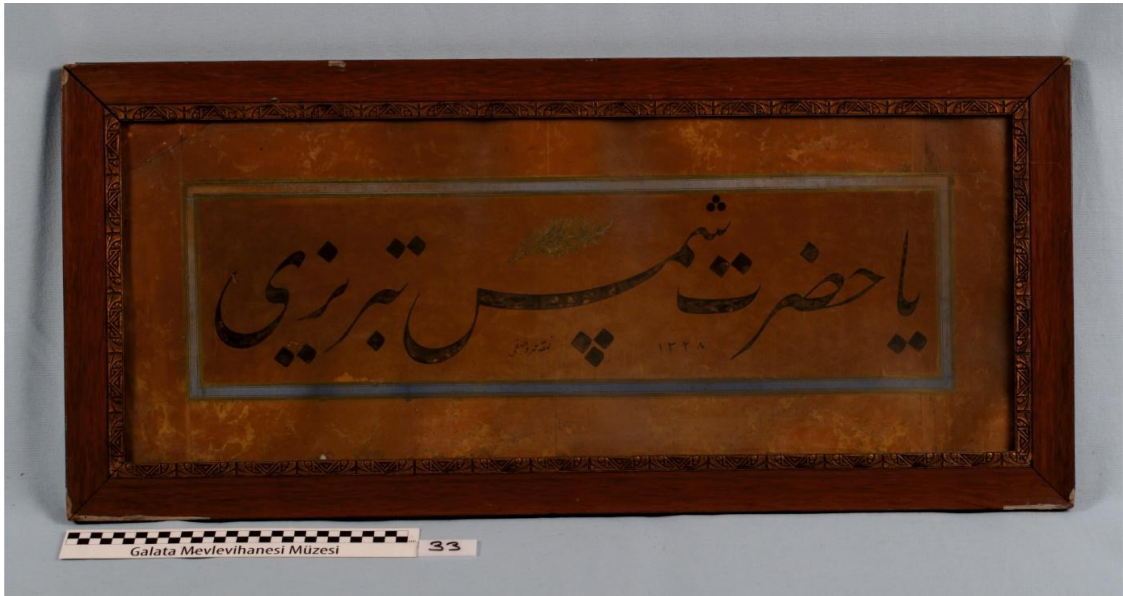 یا حضرت شمس تبریزی
١٣٢٨
Galata Mevlevihanesi Müzesi
33